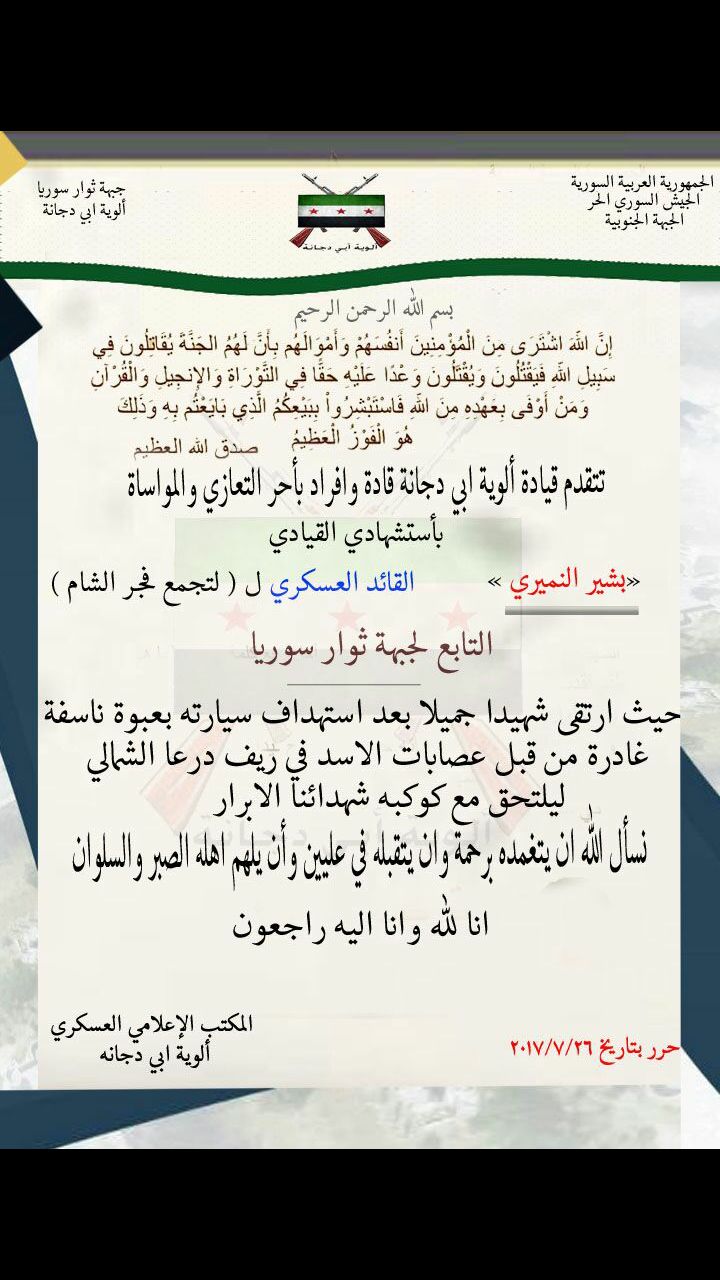 الجمهورية العربية السورية
الجيش السوري الحر
الجبهة الجنوبية
جبهة ثوار سوريا
ألوية ابي دجانة
ألوية أبي دجانة
بسم الله الرحمن الرحيم
إِنَّ اللّهَ اشْتَرَى مِنَ الْمُؤْمِنِينَ أَنفُسَهُمْ وَأَمْوَالَهُم بِأَنَّ لَهُمُ الجَنَّةَ يُقَاتِلُونَ فِي
سَبِيلِ اللّهِ فَيَقْتُلُونَ وَيُقْتَلُونَ وَعْدًا عَلَيْهِ حَقًّا فِي التَّوْرَاةِ وَالإِنجِيلِ وَالْقُرْآنِ
وَمَنْ أَوْفَى بِعَهْدِهِ مِنَ اللّهِ فَاسْتَبْشِرُواْ بِبَيْعِكُمُ الَّذِي بَايَعْتُم بِهِ وَذَلِكَ
هُوَ الْفَوْزُ الْعَظِيمُ صدق الله العظيم
تتقدم قيادة ألوية ابي دجانة قادة وافراد بأحر التعازي والمواساة
بأستشهادي القيادي
«بشير النميري » القائد العسكري ل ( لتجمع فجر الشام )
التابع لجبهة ثوار سوريا
حيث ارتقى شهيدا جميلا بعد استهداف سيارته بعبوة ناسفة
غادرة من قبل عصابات الاسد في ريف درعا الشمالي
ليلتحق مع كوكبه شهدائنا الابرار
نسأل الله ان يتغمده برحمة وان يتقبله في عليين وأن يلهم اهله الصبر والسلوان
انا لله وانا اليه راجعون
المكتب الإعلامي العسكري
ألوية ابي دجانه
حرر بتاريخ ٢٠١٧/٧/٢٦